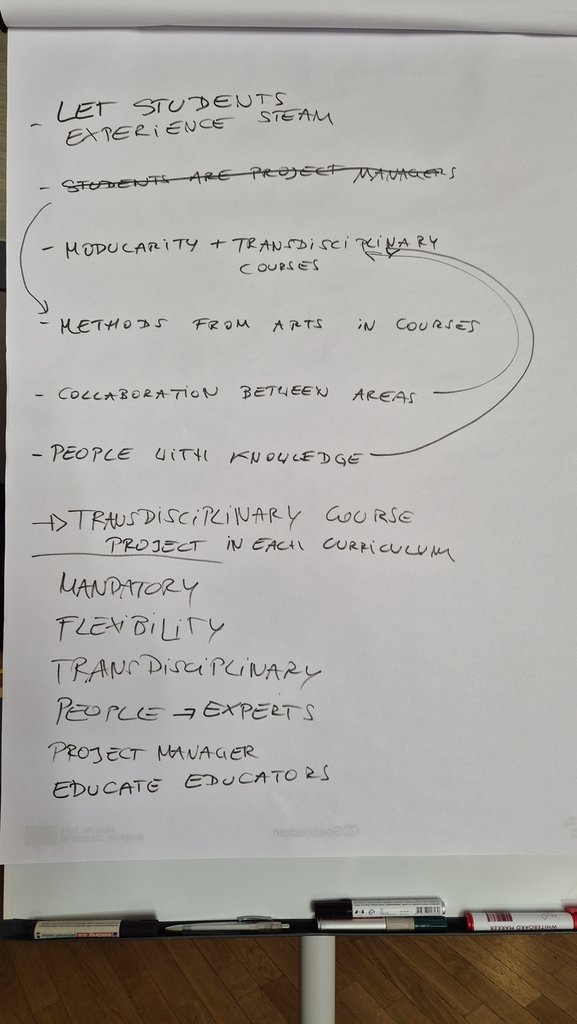 - LET STUDENTS
EXPERIENCE STEAM
- STUDENTS ARE PROJECT MANAGERS
- MODULARITY + TRANSDISCIPLINARY
COURSES
- METHODS FROM ARTS IN COURSES
- COLLABORATION BETWEEN AREAS
- PEOPLE WITH KNOWLEDGE
→ TRANSDISCIPLINARY COURSE
PROJECT IN EACH CURRICULUM
MANDATORY
FLEXIBILITY
TRANSDISCIPLINARY
PEOPLE → EXPERTS
PROJECT MANAGER
EDUCATE EDUCATORS
Soennecken
WHITEBOARD MARKER